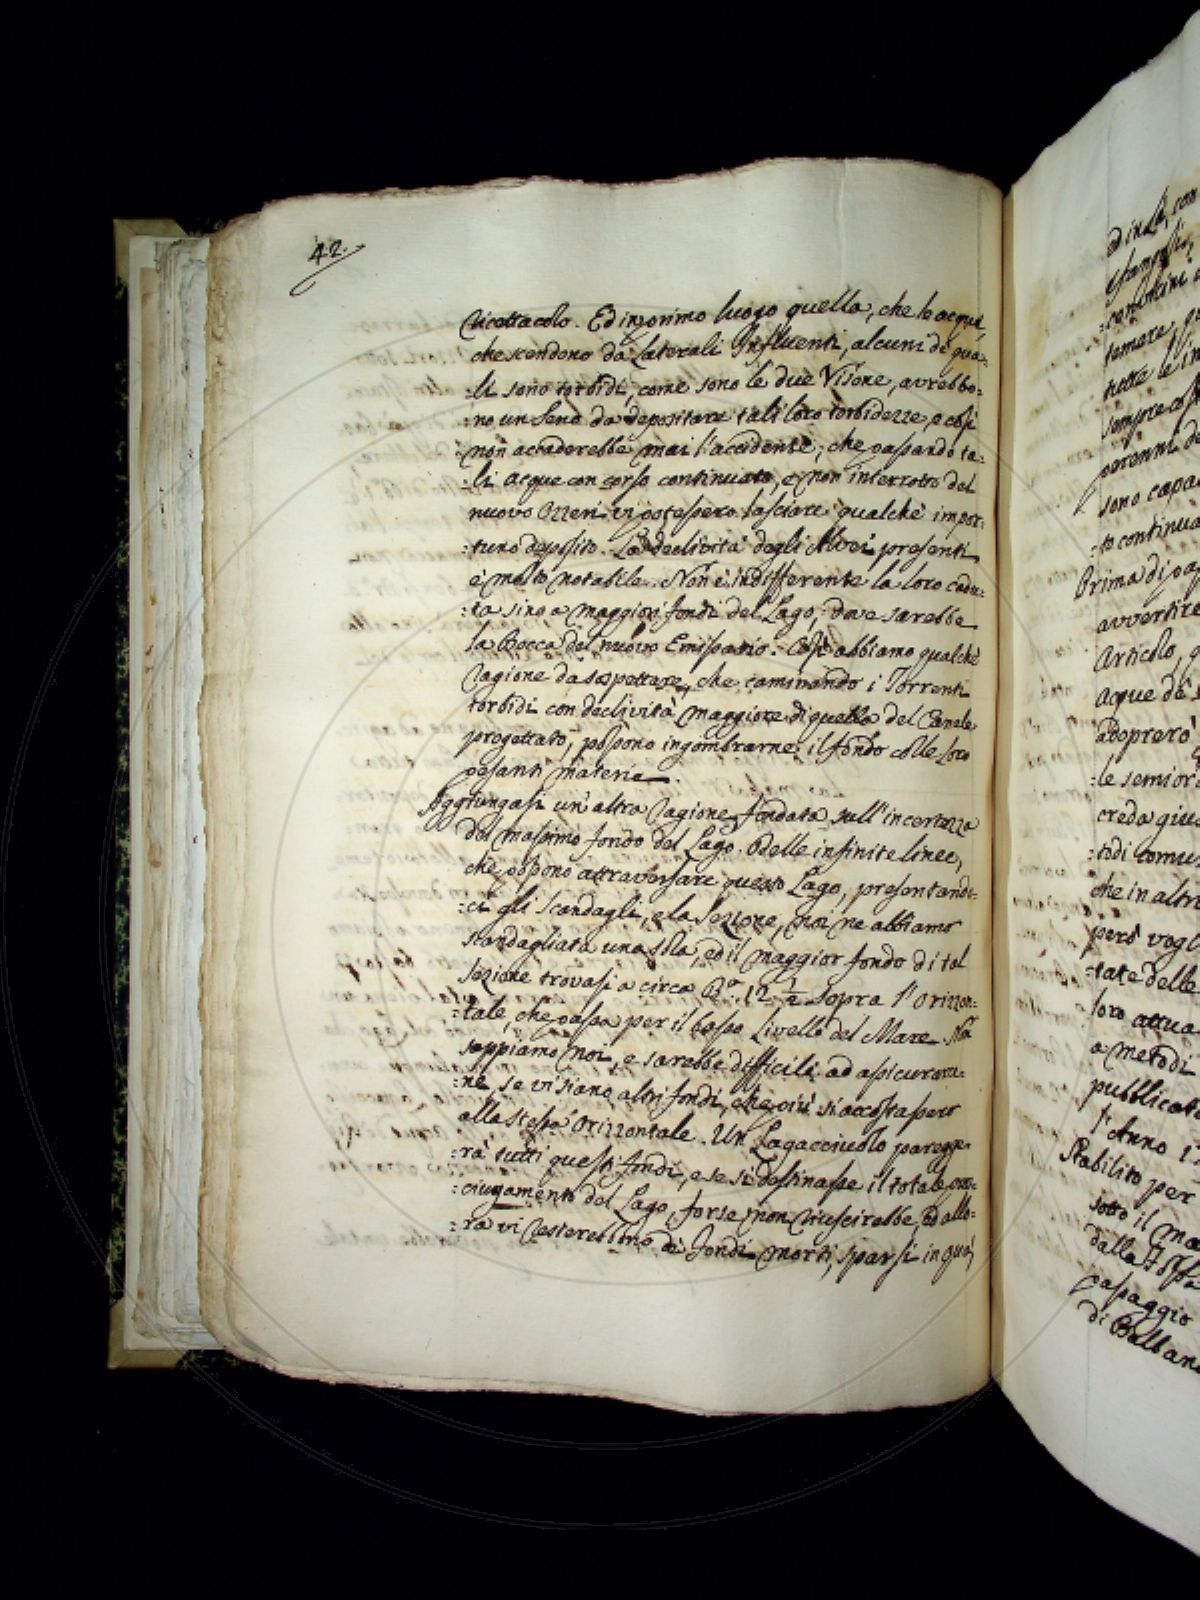 42.
ricettacolo. Ed in primo luogo quella, che le acque,
che scendono da Laterali Influenti, alcuni de qua-
:li sono torbidi, come sono le due Visone, avrebbo-
:no un seno da depositare tali loro torbidezze, e così
non accaderebbe mai l'accidente, che passando ta-
:li acque con corso continuato, e non interrotto del
nuovo Ozzeri vi potessero lasciare qualche impor-
:tuno deposito. La declività degli Alvei presenti
è molto notabile. Non è indifferente la loro cadu-
:ta sino a maggiori fondi del Lago, dove sarebbe
la Bocca del nuovo Emissario. Così abbiamo qualche
ragione da sospettare, che caminando i Torrenti
torbidi con declività maggiore di quella del Canale
progettato, possono ingombrarne il fondo colle loro
pesanti materie.
Aggiungasi un'altra ragione fondata sull'incertezza
del massimo fondo del Lago. Delle infinite linee,
che possono attraversare questo Lago, presentando-
:ci gli Scandagli, e la Sezione, noi ne abbiamo
scandagliata una sola, ed il maggior fondo di tal
sezione trovasi a circa Bª. 12 ½ sopra l'Orizzon-
:tale, che passa per il basso Livello del Mare. Non
sappiamo noi, e sarebbe difficile ad assicurarce-
:ne, se vi siano altri fondi, che più si accostassero
alla stessa Orizzontale. Un Lagacciuolo paregge-
:rà tutti questi fondi, e se si destinasse il totale pro-
:ciugamento del Lago, forse non riuscirebbe, ed allo-
:ra vi resterebbono de fondi morti, sparsi in quà,
ed in là, con
tutte le in
sempre cost
perenni de
sono capa
:to continua
Prima di pas
avvertire
Articolo, q
acque de
adoprerò
le semiora
creda giu
:todi comu
che in altri
però vogl
:tate delle
loro attua
a metodi
pubblicat
l'Anno 17
Stabilito per
sotto il ma
dalla
passaggio
di Balbano